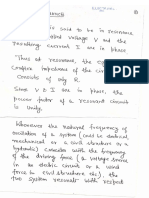 is said to be in resonance
applied voltage V and the
resulting current I are in phase
Thus at resonance, the equivalent
Complex impedance of the circuit
consists of only R.
Since V & I are in phase, the
power factor of a resonant circuit
is unity.
Whenever the natural frequency of
oscillation of a system (could be electrical,
mechanical or a civil structure or a
hydraulic) coincides with the frequency
of the driving force (a voltage source
in electric circuit or a wind
force in civil structure etc), the
two system resonate with respect